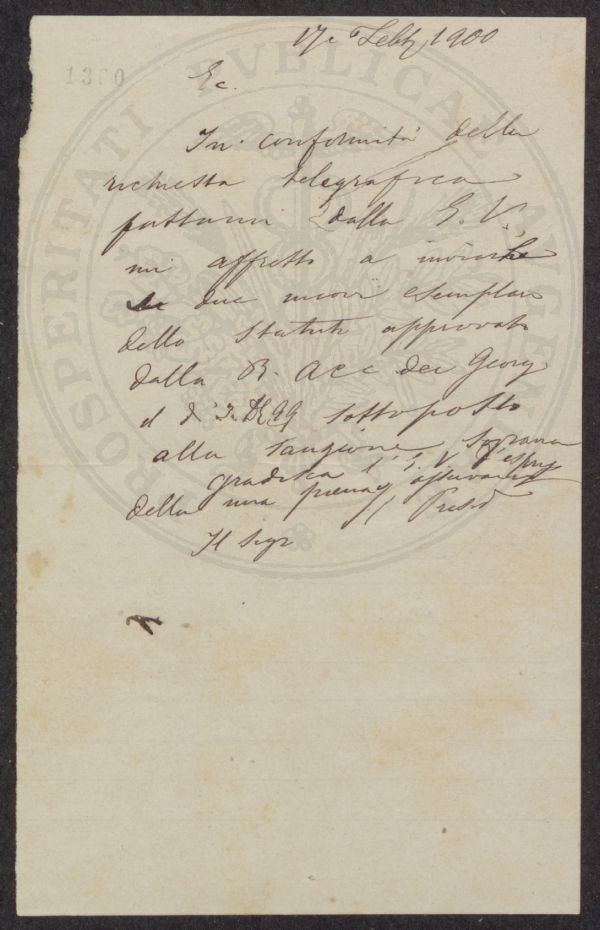 17 Febb 1900
1360
Ec.
In conformità della
richiesta telegrafica
fattami dalla E. V.
mi affretto a inviarle
due nuovi esemplari
dello Statuto approvato
dalla R. Acc dei Georg
il dì 3 99 sottoposto
alla sanzione sovrana
gradisca l' E. V
della mia piena osservanza
Il Presid
Il Segr
PROSPERITATI PVBLICAE AVGENDAE